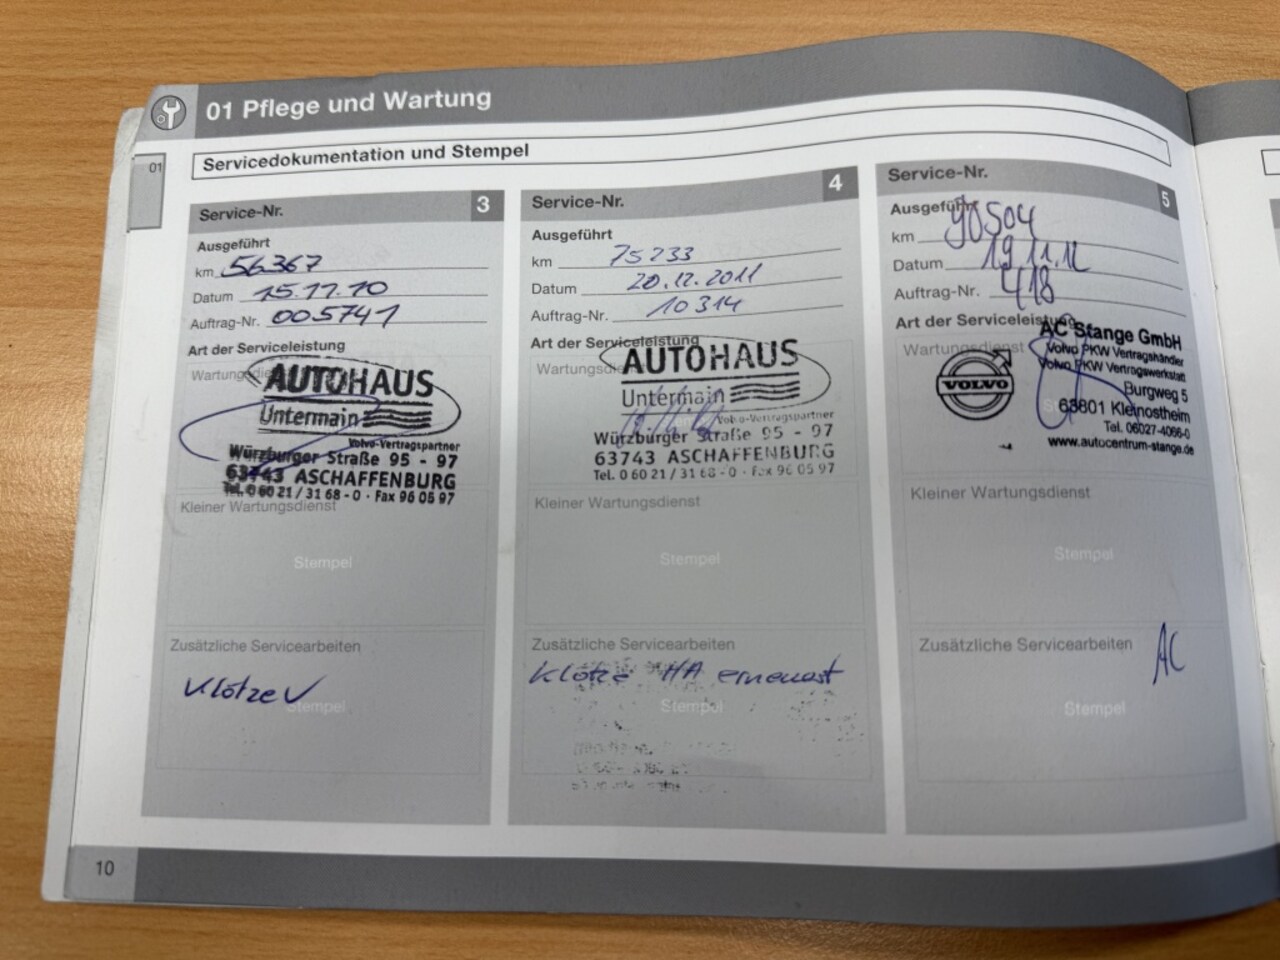 01 Pflege und Wartung
01
Servicedokumentation und Stempel
Service-Nr. 3
Ausgeführt
km 56367
Datum 15.11.10
Auftrag-Nr. 005741
Art der Serviceleistung
Wartungsdienst
AUTOHAUS
Untermain
Volvo-Vertragspartner
Würzburger Straße 95 - 97
63743 ASCHAFFENBURG
Tel. 0 60 21 / 31 68 - 0 · Fax 96 05 97
Kleiner Wartungsdienst
Stempel
Zusätzliche Servicearbeiten
Klötze V
Stempel
Service-Nr. 4
Ausgeführt
km 75233
Datum 20.12.2011
Auftrag-Nr. 10314
Art der Serviceleistung
Wartungsdie
AUTOHAUS
Untermain
Volvo-Vertragspartner
Würzburger Straße 95 - 97
63743 ASCHAFFENBURG
Tel. 0 60 21 / 31 68 - 0 · Fax 96 05 97
Kleiner Wartungsdienst
Stempel
Zusätzliche Servicearbeiten
Klötze HA erneuert
Stempel
Service-Nr. 5
Ausgeführt
km 90504
Datum 19.11.12
Auftrag-Nr. 418
Art der Serviceleistung
Wartungsdienst
VOLVO
AC Stange GmbH
Volvo PKW Vertragshändler
Volvo PKW Vertragswerkstatt
Burgweg 5
63801 Kleinostheim
Tel. 06027-4066-0
www.autocentrum-stange.de
Kleiner Wartungsdienst
Stempel
Zusätzliche Servicearbeiten
AC
Stempel
10